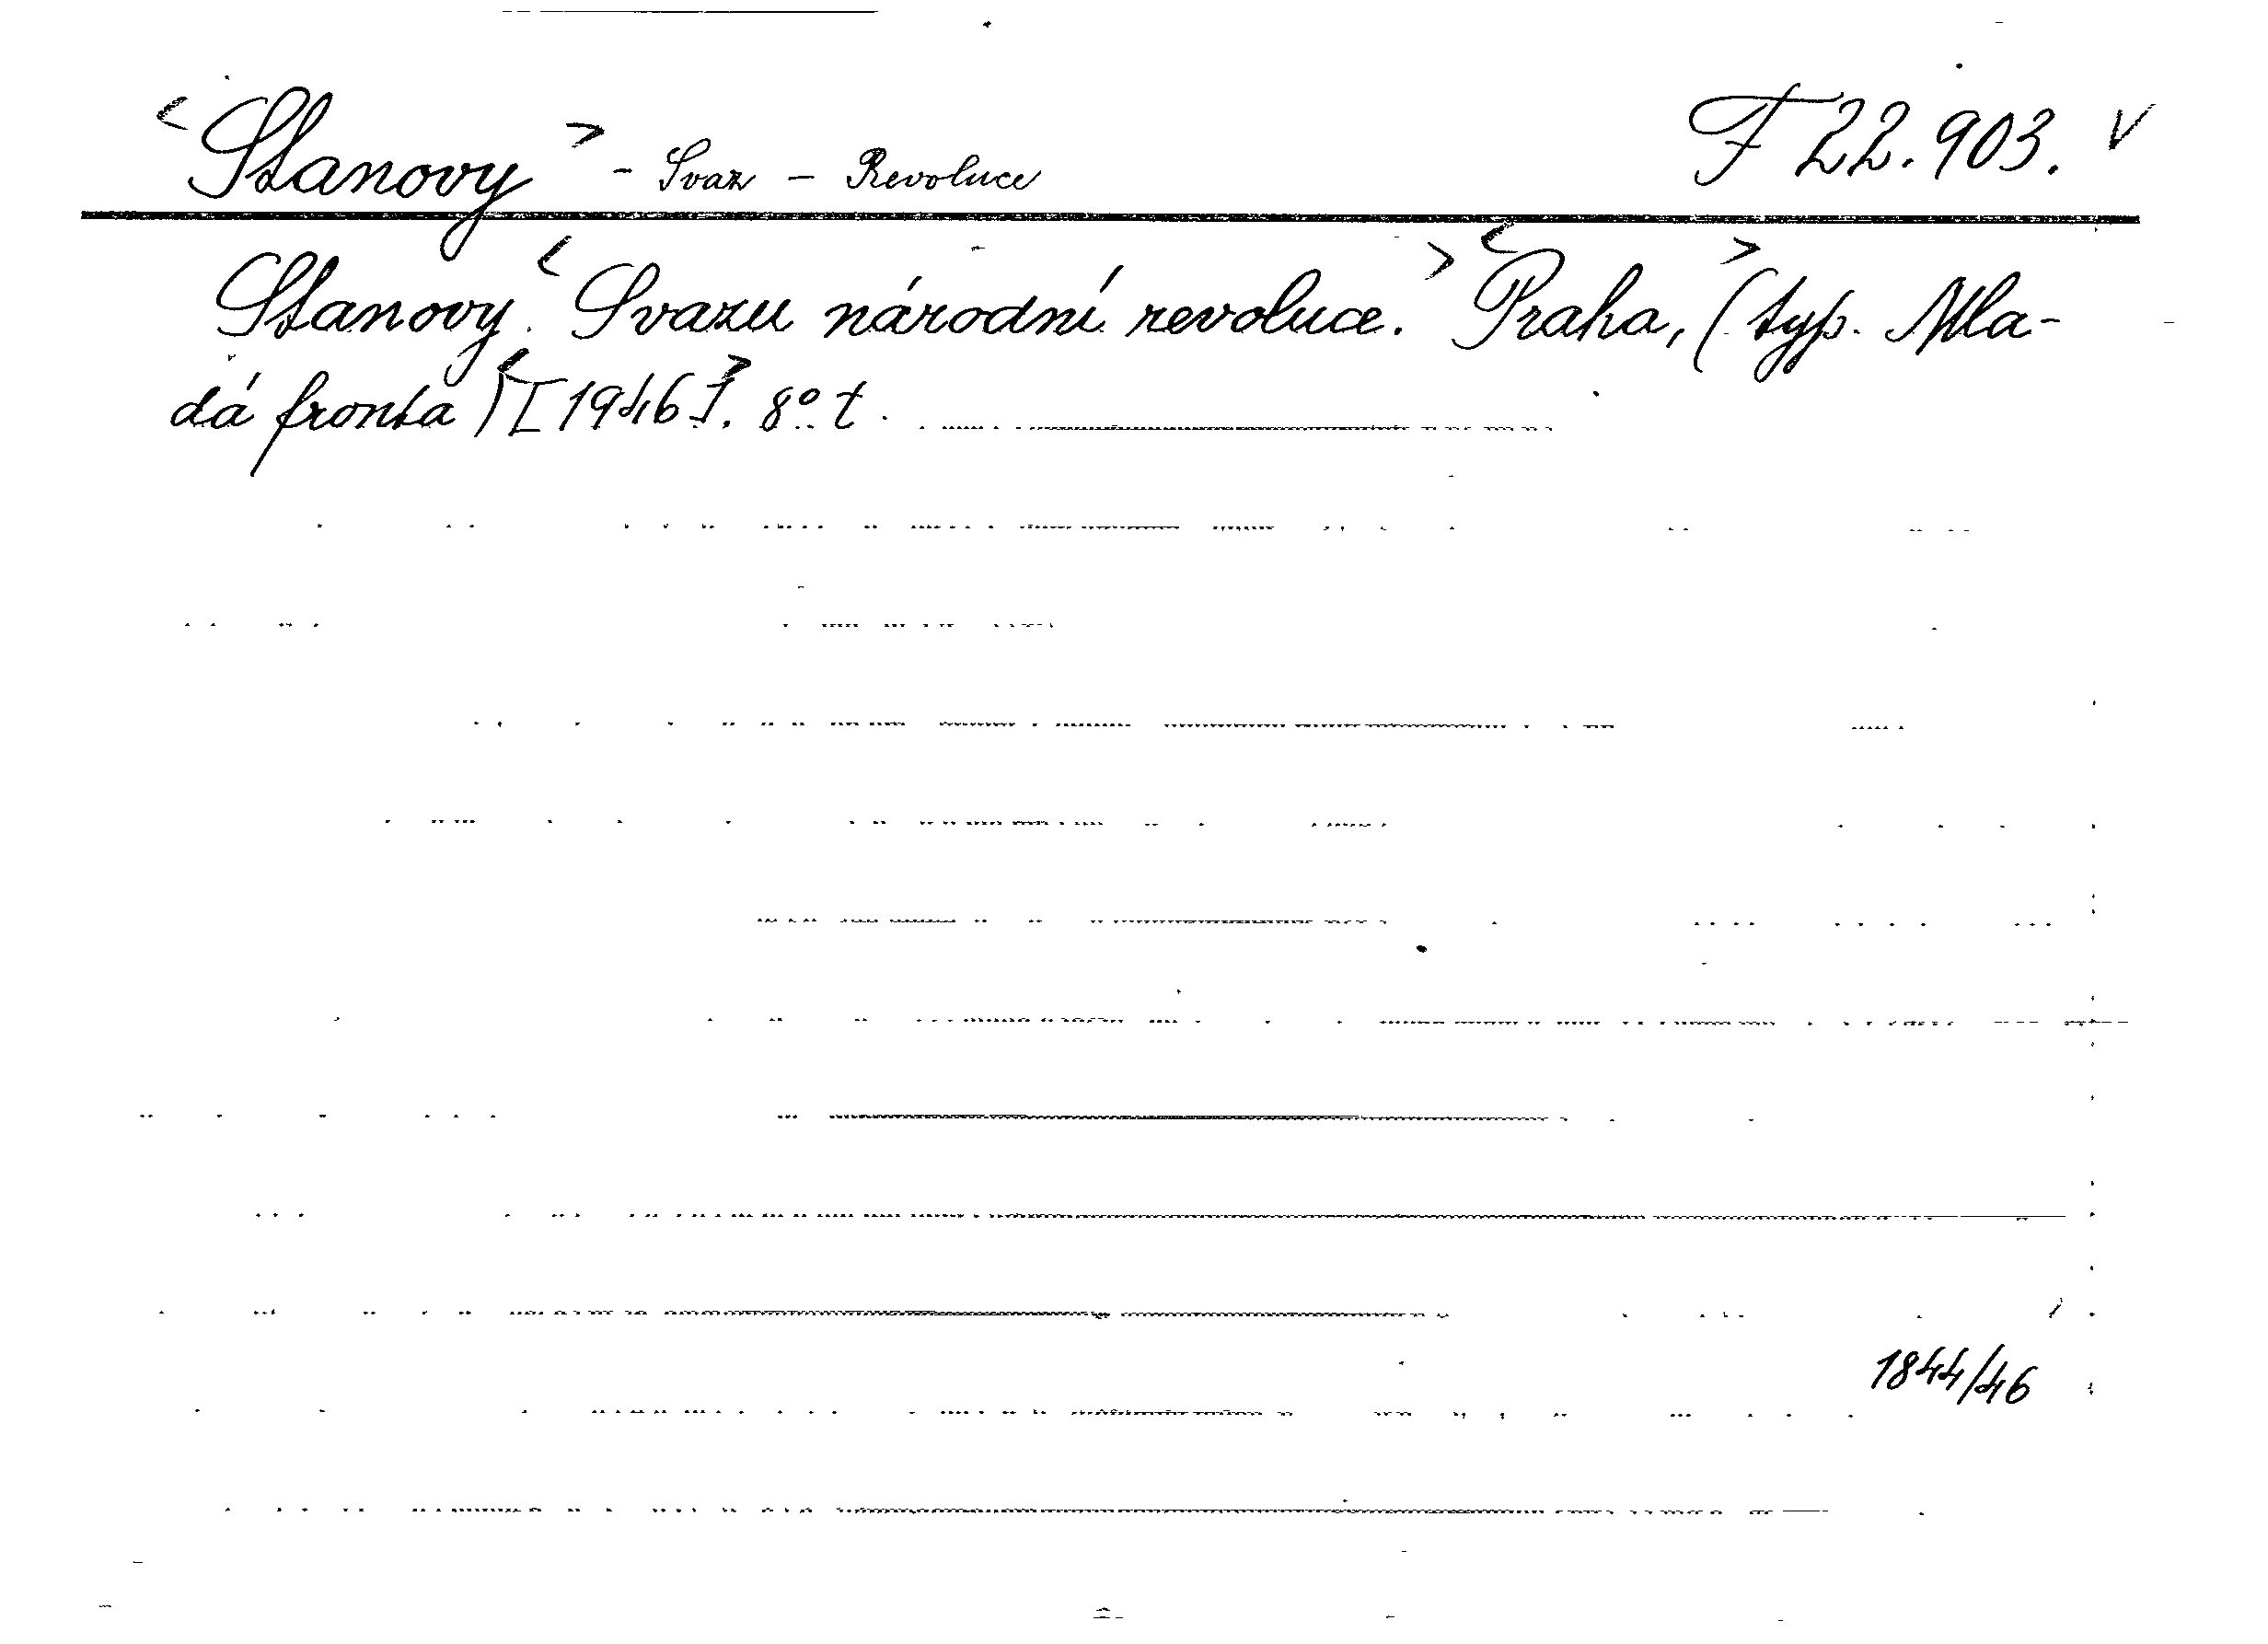 <Stanovy> - Svaz - Revoluce F 22.903. V
Stanovy <Svazu národní revoluce.> <Praha,> (typ. Mla-
dá fronta) <[1946]>. 8° t.
1844/46